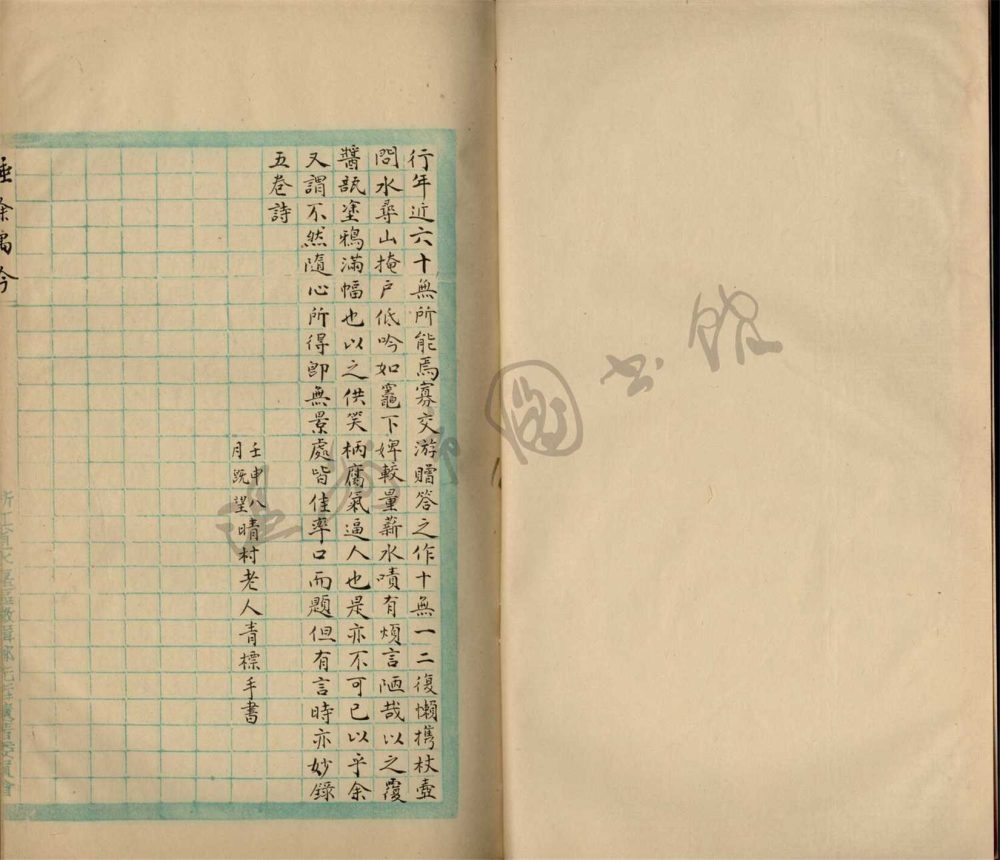 行年近六十無所能焉寡交游贈答之作十無一二復懶携杖壺
問水尋山掩户低吟如竈下婢較量薪水嘖有煩言陋哉以之覆
醬瓿塗鴉滿幅也以之供笑柄腐氣逼人也是亦不可已以乎余
又謂不然隨心所得即無景處皆佳率口而題但有言時亦妙錄
五卷詩
壬申八
月既望晴村老人青標手書
圖书館